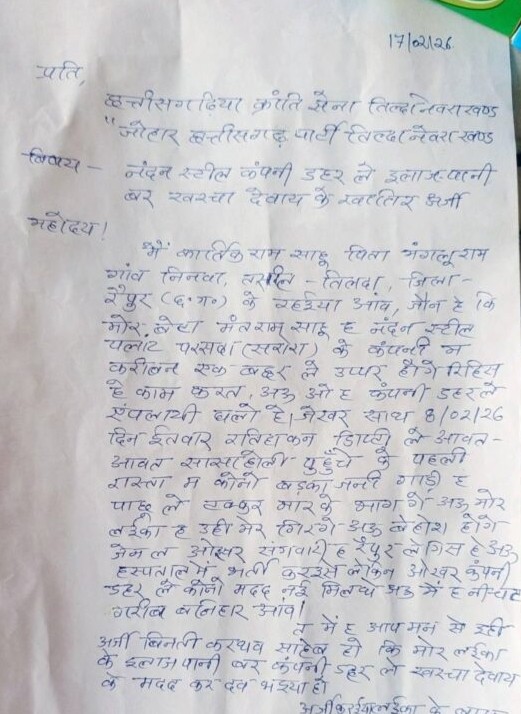 17/02/26
प्रति,
छत्तीसगढ़िया क्रांति सेना तिल्दा नेवरा खण्ड
"जोहार छत्तीसगढ़ पार्टी तिल्दा नेवरा खण्ड
विषय - नंदन स्टील कंपनी डहर ले इलाज-पानी
बर खरचा देवाय के खातिर अर्जी
महोदय!
मैं कार्तिक राम साहू पिता मंगलू राम
गांव निनवा, तहसील - तिल्दा, जिला -
रैपुर (छ.ग.) के रहईया आंव, जौन हे कि
मोर बेटा मंतराम साहू ह नंदन स्टील
पलांट परसदा (सरोरा) के कंपनी म
करीबन एक बछर ले उप्पर होगे रिहिस
हे काम करत, अऊ ओ ह कंपनी डहर ले
सपलायी हावे हे। जेखर साथ 8/02/26
दिन ईतवार रतिहाकन डिप्टी ले आवत-
आवत सासाहोली पुहुँचे के पहली
रास्ता म कोनो बड़का जनी गाड़ी ह
पाछू ले टक्कर मार के भाग गे अऊ मोर
लईका ह उही मेर गिरगे अऊ बेहोश होगे
जेन ल ओखर संगवारी ह रैपुर लेगिस हे अऊ
हस्पताल में भर्ती करइसे लेकिन ओखर कंपनी
डहर ले कोनो मदद नई मिलथे अऊ मैं ह नीचट
गरीब बनिहार आंव।
त में ह आप मन से इही
अर्जी बिनती करथव साहेब हो कि मोर लईका
के इलाज पानी बर कंपनी डहर ले खरचा देवाय
के मदद कर देव भईया हो
अर्जी करईया लईका के